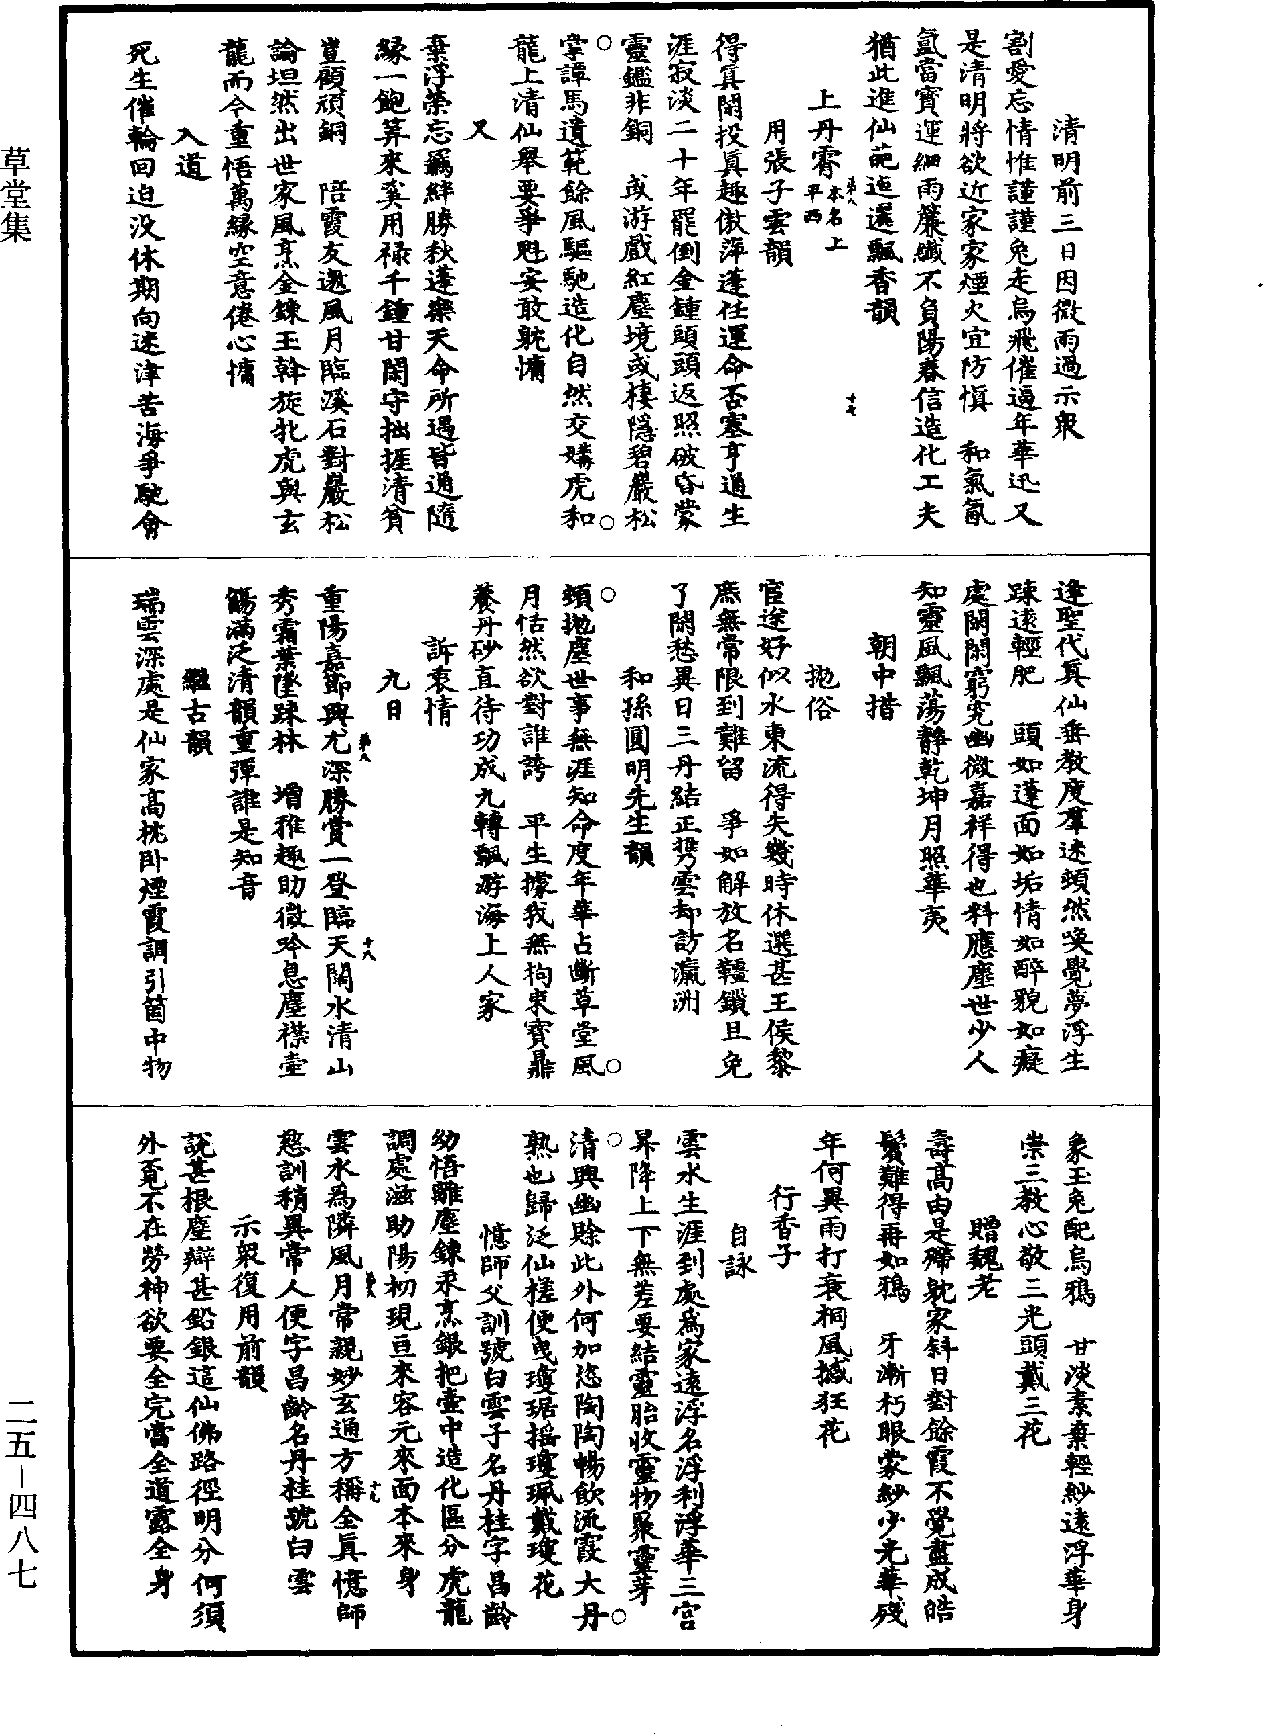 草堂集
清明前三日因微雨過示衆
割愛忘情惟謹謹兔走烏飛催遞年華迅又
是清明將欲近家家煙火宜防慎　和氣氤
氳當寶運細雨簾纖不負陽春信造化工夫
猶此進仙葩迤邐飄香韻
上丹霄本名上平西
用張子雲韻
得眞閑投眞趣傲萍蓬任運命否塞亨通生
涯寂淡二十年罷倒金鍾頭頭返照破昏蒙
靈鑑非銅　或游戲紅塵境或棲隱碧巖松
掌譚馬遺範餘風驅馳造化自然交媾虎和
龍上清仙舉要爭尅安敢躭慵
又
棄浮榮忘羈絆勝秋蓬樂天命所遇皆通隨
緣一飽算來奚用祿千鍾甘閑守拙捱清貧
豈顧頑銅　陪霞友邀風月臨溪石對巖松
論坦然出世家風烹金鍊玉斡旋牝虎與玄
龍而今重悟萬緣空意倦心慵
入道
死生催輪回迫沒休期向迷津苦海爭馳會
逢聖代眞仙垂教度羣迷頓然喚覺夢浮生
踈遠輕肥　頭如蓬面如垢情如醉貌如癡
處閑閑窮究幽微嘉祥得也料應塵世少人
知靈風飄蕩靜乾坤月照華夷
朝中措
拋俗
宦途好似水東流得失幾時休選甚王侯黎
庶無常限到難留　爭如解放名韁鎖且免
了閑愁異日三丹結正携雲却訪瀛洲
和孫圓明先生韻
頓拋塵世事無涯知命度年華占斷草堂風
月恬然欲對誰誇　平生據我無拘束寶鼎
養丹砂直待功成九轉飄游海上人家
訴衷情
九日
重陽嘉節興尤深勝賞一登臨天闊水清山
秀霜葉墜踈林　增雅趣助微吟息塵襟壺
觴滿泛清韻重彈誰是知音
繼古韻
瑞雲深處是仙家高枕臥煙霞調引箇中物
象玉兔配烏鴉　甘淡素棄輕紗遠浮華身
崇三教心敬三光頭戴三花
贈魏老
壽高由是殢躭家斜日對餘霞不覺盡成皓
鬢難得再如鴉　牙漸朽眼蒙紗少光華殘
年何異雨打衰桐風撼狂花
行香子
自詠
雲水生涯到處爲家遠浮名浮利浮華三宮
昇降上下無差要結靈胎收靈物聚靈芽
清興幽賒此外何加恣陶陶暢飲流霞大丹
熟也歸泛仙槎便曳瓊琚搖瓊珮戴瓊花
憶師父訓號白雲子名丹桂字昌齡
幼悟離塵鍊汞烹銀把壺中造化區分虎龍
調處滋助陽初現亘來容元來面本來身
雲水爲隣風月常親妙玄通方稱全眞憶師
慈訓稍異常人便字昌齡名丹桂號白雲
示衆復用前韻
說甚根塵辯甚鉛銀這仙佛路徑明分何須
外覓不在勞神欲要全完當全道露全身
二五—四八七